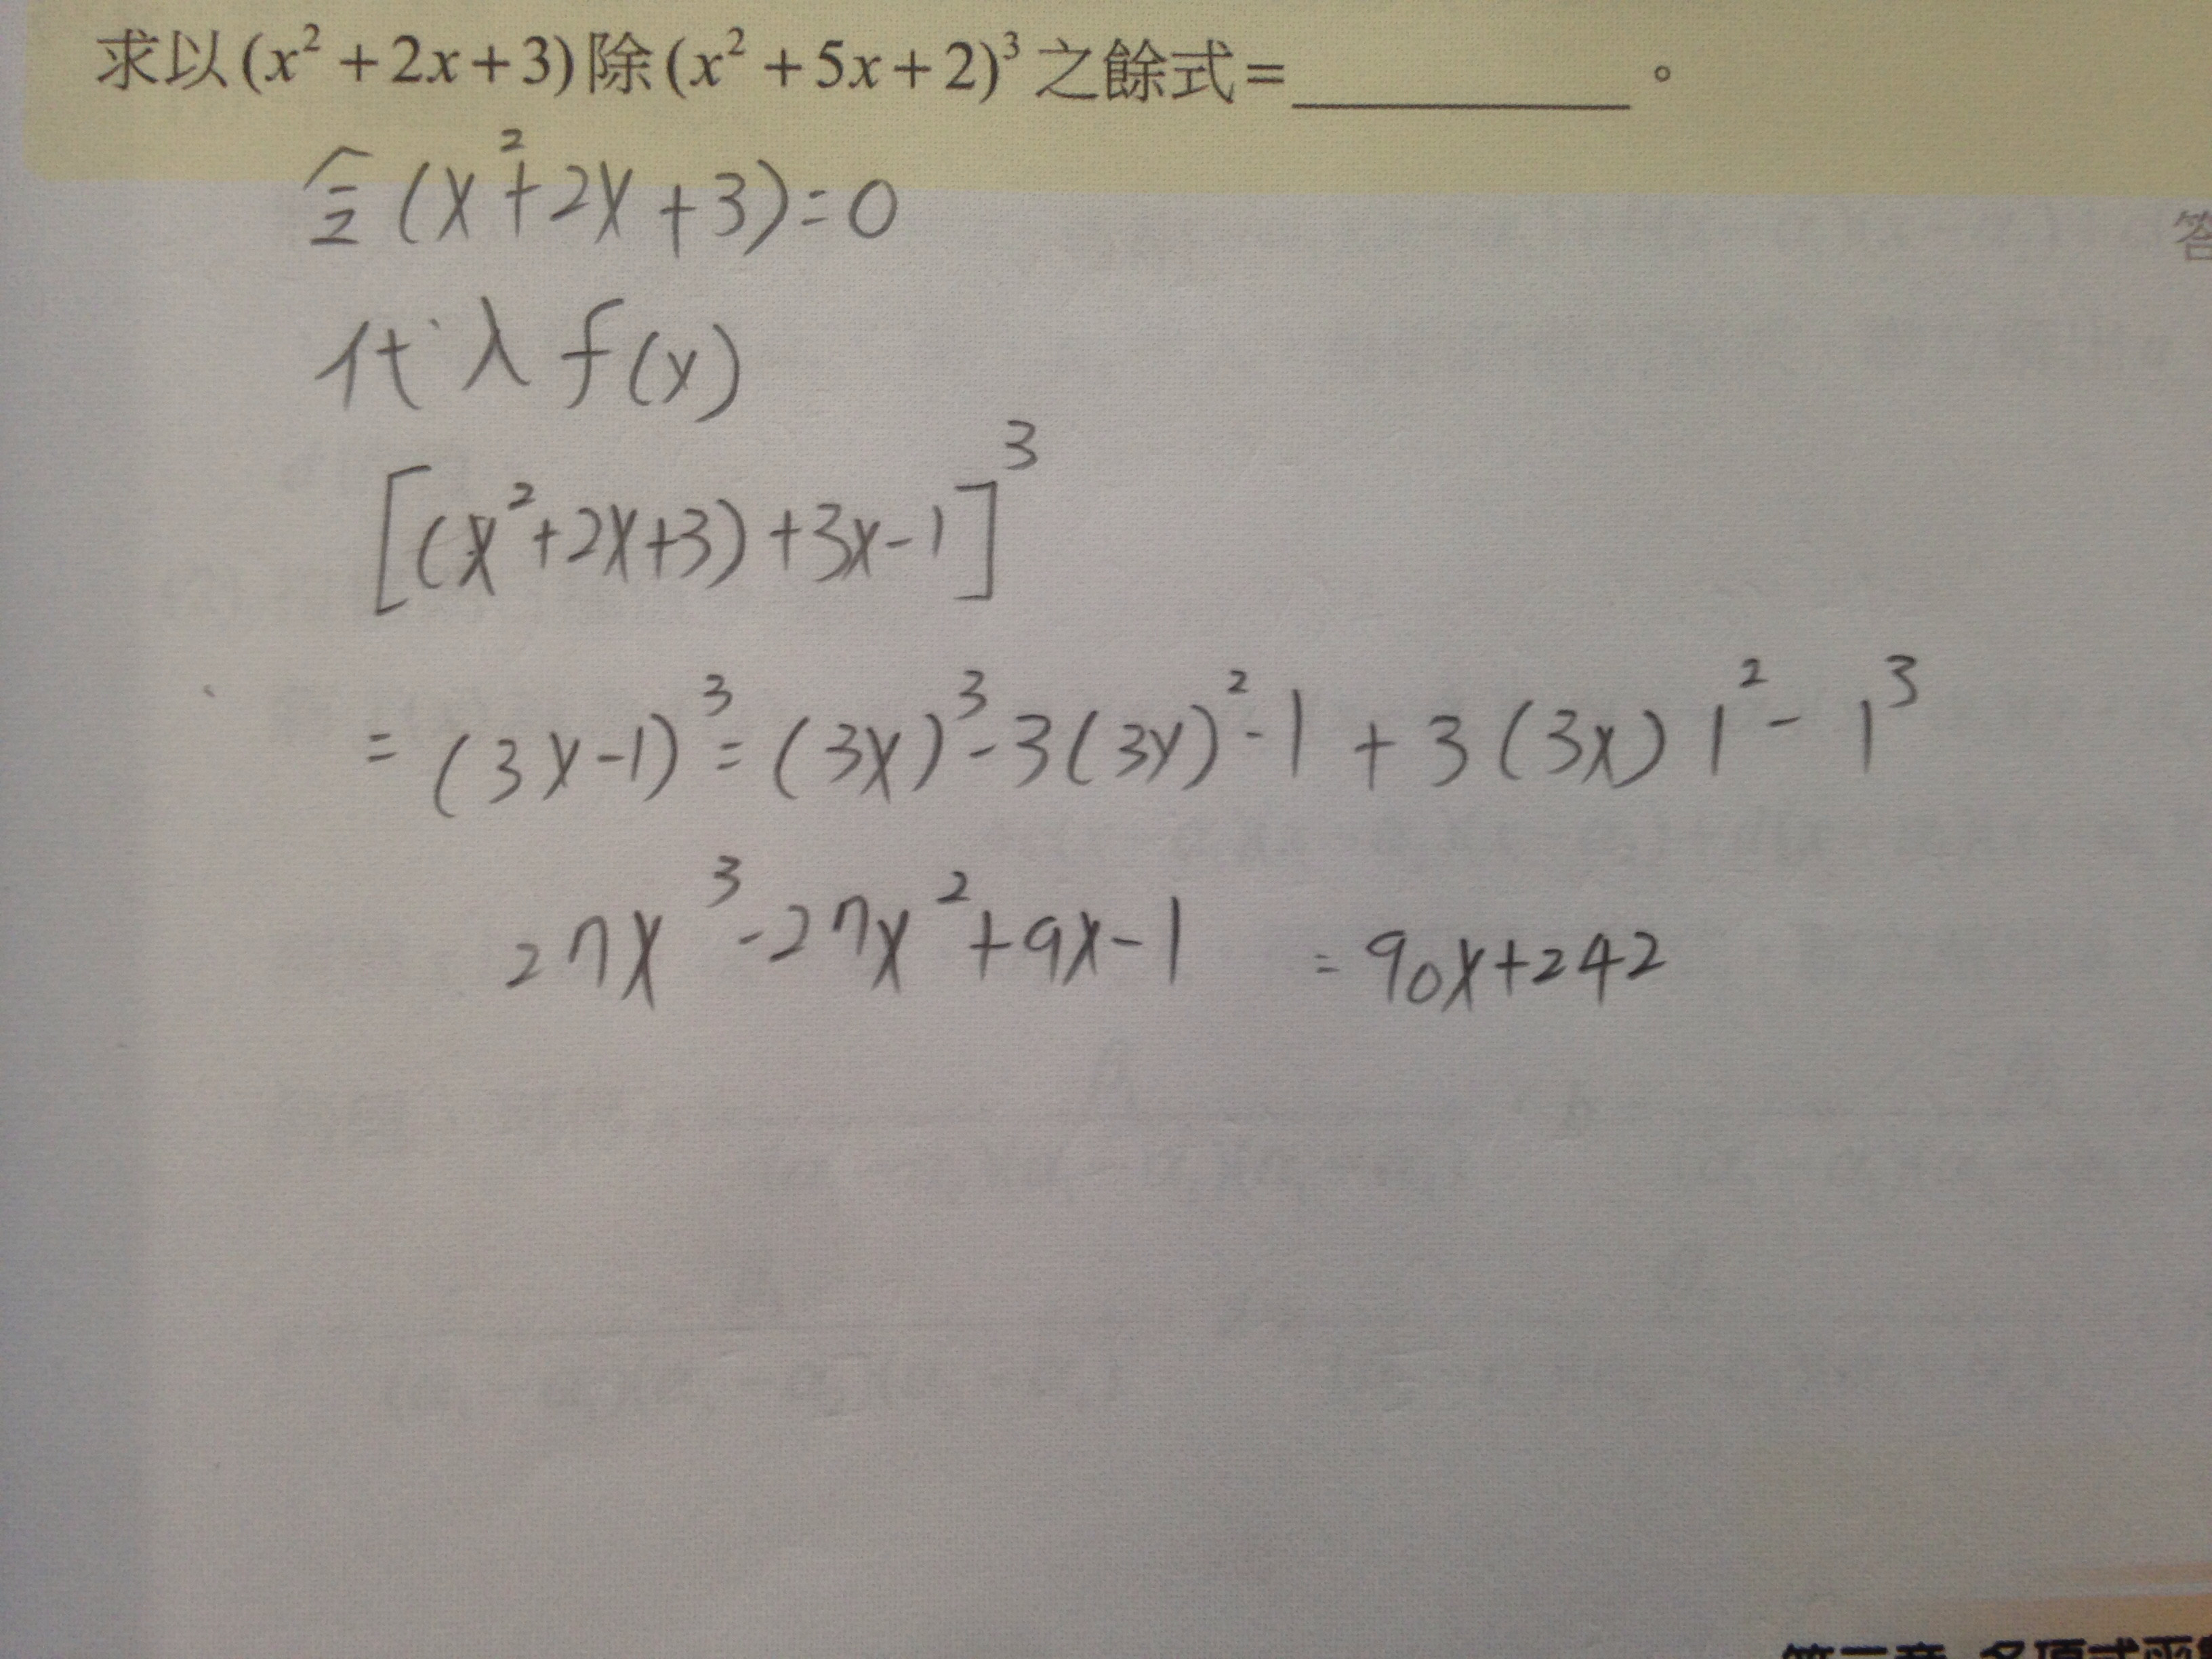 求以(x²+2x+3)除(x²+5x+2)³之餘式=__________。
令(x²+2x+3)=0
答
代入f(x)
[(x²+2x+3)+3x-1]³
=(3x-1)³=(3x)³-3(3x)²-1+3(3x)1²-1³
27x³-27x²+9x-1 =90x+242